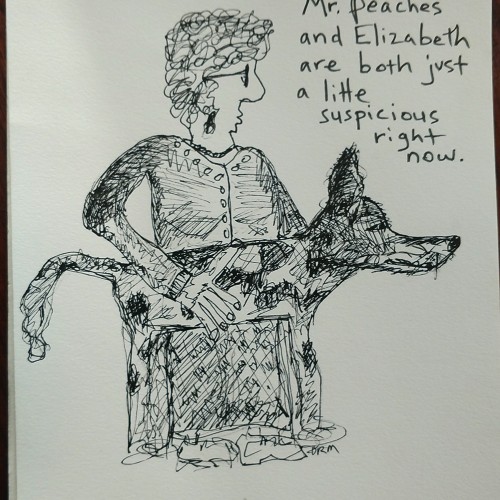 Mr. Peaches
and Elizabeth
are both just
a little
suspicious
right
now.
DRM